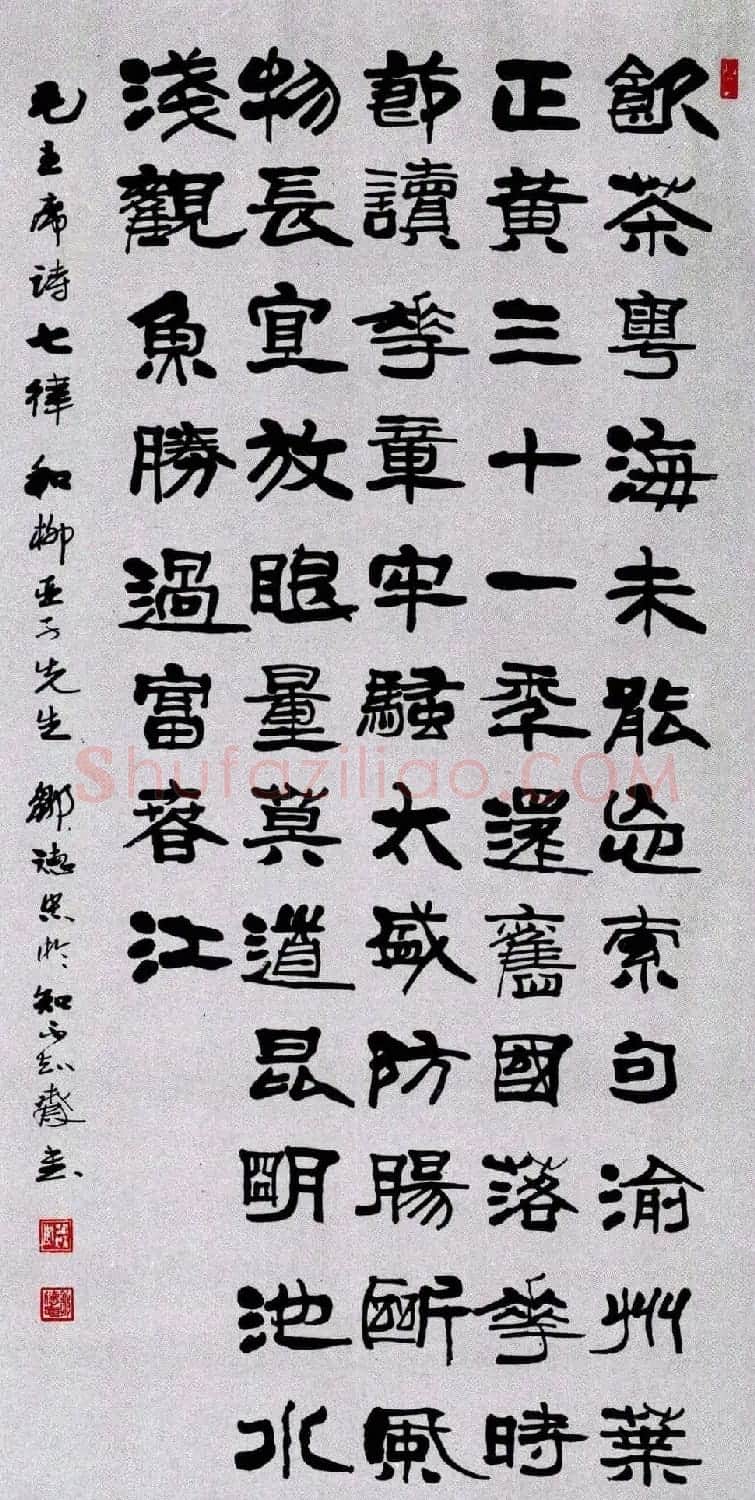 飲茶粵海未能忘索句渝州葉
正黃三十一年還舊國落華時
節讀華章牢騷太盛防腸斷風
物長宜放眼量莫道昆明池水
淺觀魚勝過富春江
毛主席诗七律和柳亚子先生 鄒德忠於知不知齋書
Shufaziliao.COM